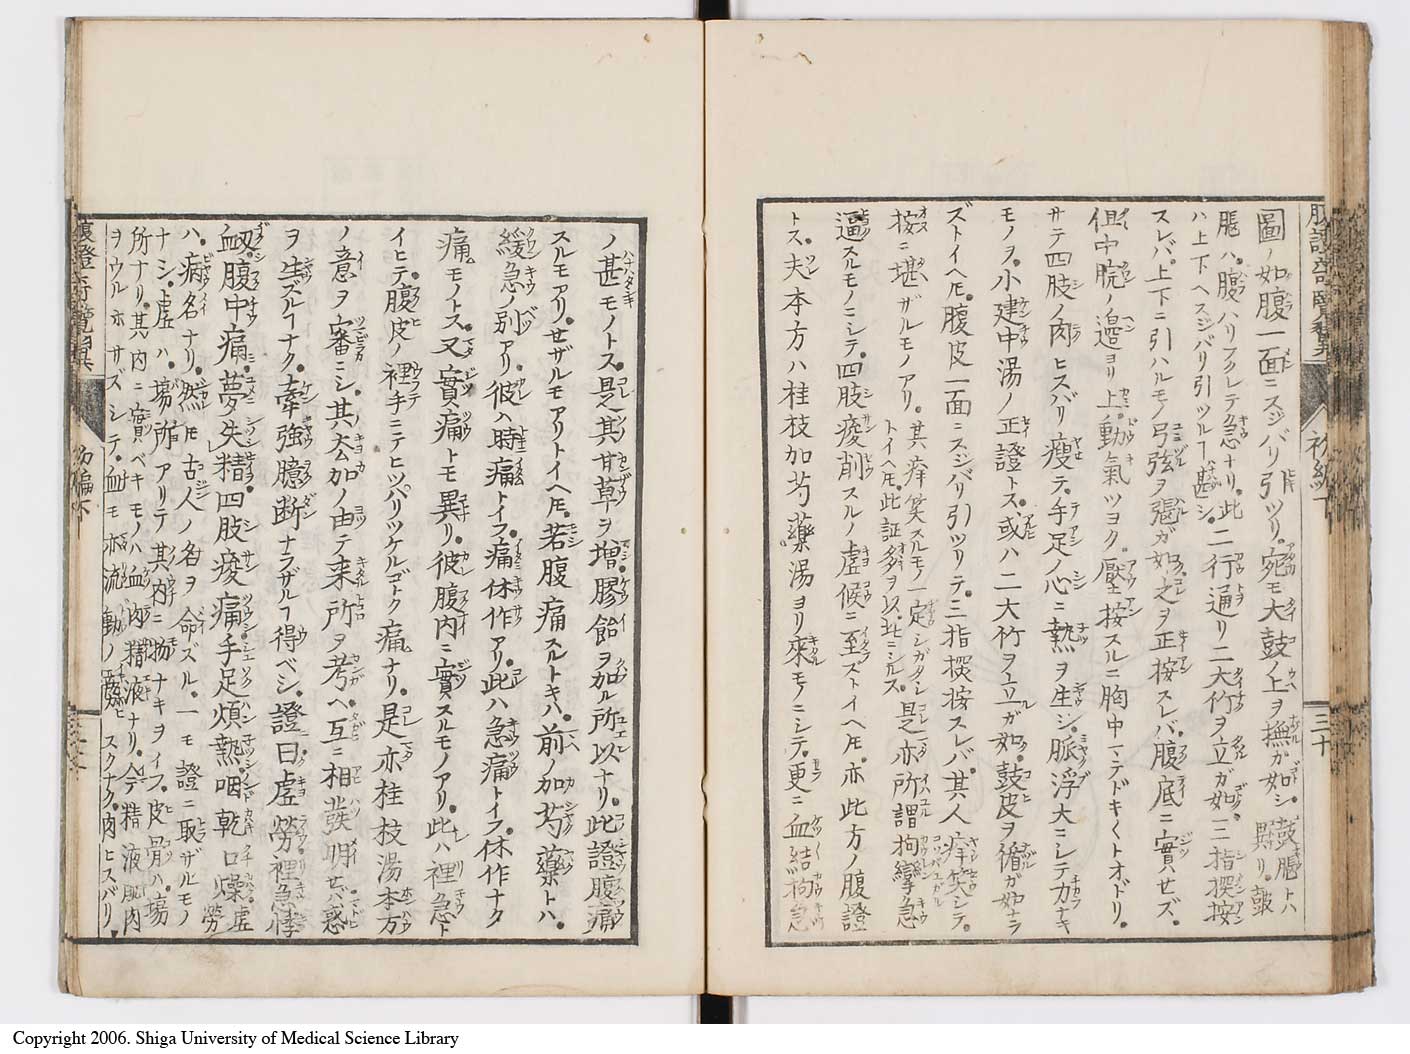 圖ノ如腹一面ニスジバリ引ツリ。宛モ大鼓ノ上ヲ撫ガ如シ。鼓脹トハ異リ。鼓
脹ハ。腹ハリフクレテ急ナリ。此ハ上下ヘスジバリ引ツルヿ甚シ。二行通リ二大竹ヲ立ガ如。三指探按
スレバ。上下ニ引ハルモノ弓弦ヲ張ガ如。之ヲ正按スレバ。腹底ニ實セズ。
但中脘ノ邉ヨリ上。動氣ツヨク。壓按スルニ胸中マデドキ〱トオドリ。
サテ四肢ノ肉ヒスバリ瘦テ。手足ノ心ニ熱ヲ生ジ。脈浮大ニシテ力ナキ
モノヲ。小建中湯ノ正證トス。或ハ二大竹ヲ立ガ如。鼓皮ヲ循ガ如ナラ
ズトイヘ𪜈。腹皮一面ニスジバリ引ツリテ。三指探按スレバ。其人痒笑シテ。
按ニ堪ザルモノアリ。其痒笑スルモノ一定シガタシトイヘ𪜈。此証多ヲ以。此ニシルス。是亦所謂拘攣急
逼スルモノニシテ。四肢痠削スルノ虚候ニ至ズトイヘ𪜈。亦此方ノ腹證
トス。夫本方ハ桂枝加芍藥湯ヨリ來モノニシテ。更ニ血結拘急
初編下
三十
ノ甚モノトス。是其甘草ヲ増。膠飴ヲ加ル所以ナリ。此證腹痛
スルモアリ。せザルモアリトイヘ𪜈。若腹痛スルトキハ。前ノ加芍藥トハ。
緩急ノ別アリ。彼ハ時痛トイフ。痛休作アリ。此ハ急痛トイフ。休作ナク
痛モノトス。又實痛トモ異リ。彼腹内ニ實スルモノアリ。此ハ裡急ト
イヒテ。腹皮ノ裡手ニテヒツパリツケルゴトク痛ナリ。是亦桂枝湯本方
ノ意ヲ審ニシ。其去加ノ由テ来所ヲ考ヘ。互ニ相發明せバ。惑
ヲ生ズルヿナク。牽強臆断ナラザルヿ得ベシ。證曰。虚勞裡急。悸
衂。腹中痛。夢失精。四肢痠痛。手足煩熱。咽乾口燥。虚勞
ハ。病名ナリ。然𪜈古人ノ名ヲ命ズル。一モ證ニ取ザルモノ
ナシ。虚ハ。塲所アリテ其内ニ物ナキヲイフ。皮骨ハ。塲
所ナリ。其内ニ實ベキモノハ血肉精液ナリ。今精液肌肉
ヲウルホサズシテ。血モ亦流動ノ藤スクナク。肉ヒスバリ。
腹證奇覽翼
初編下